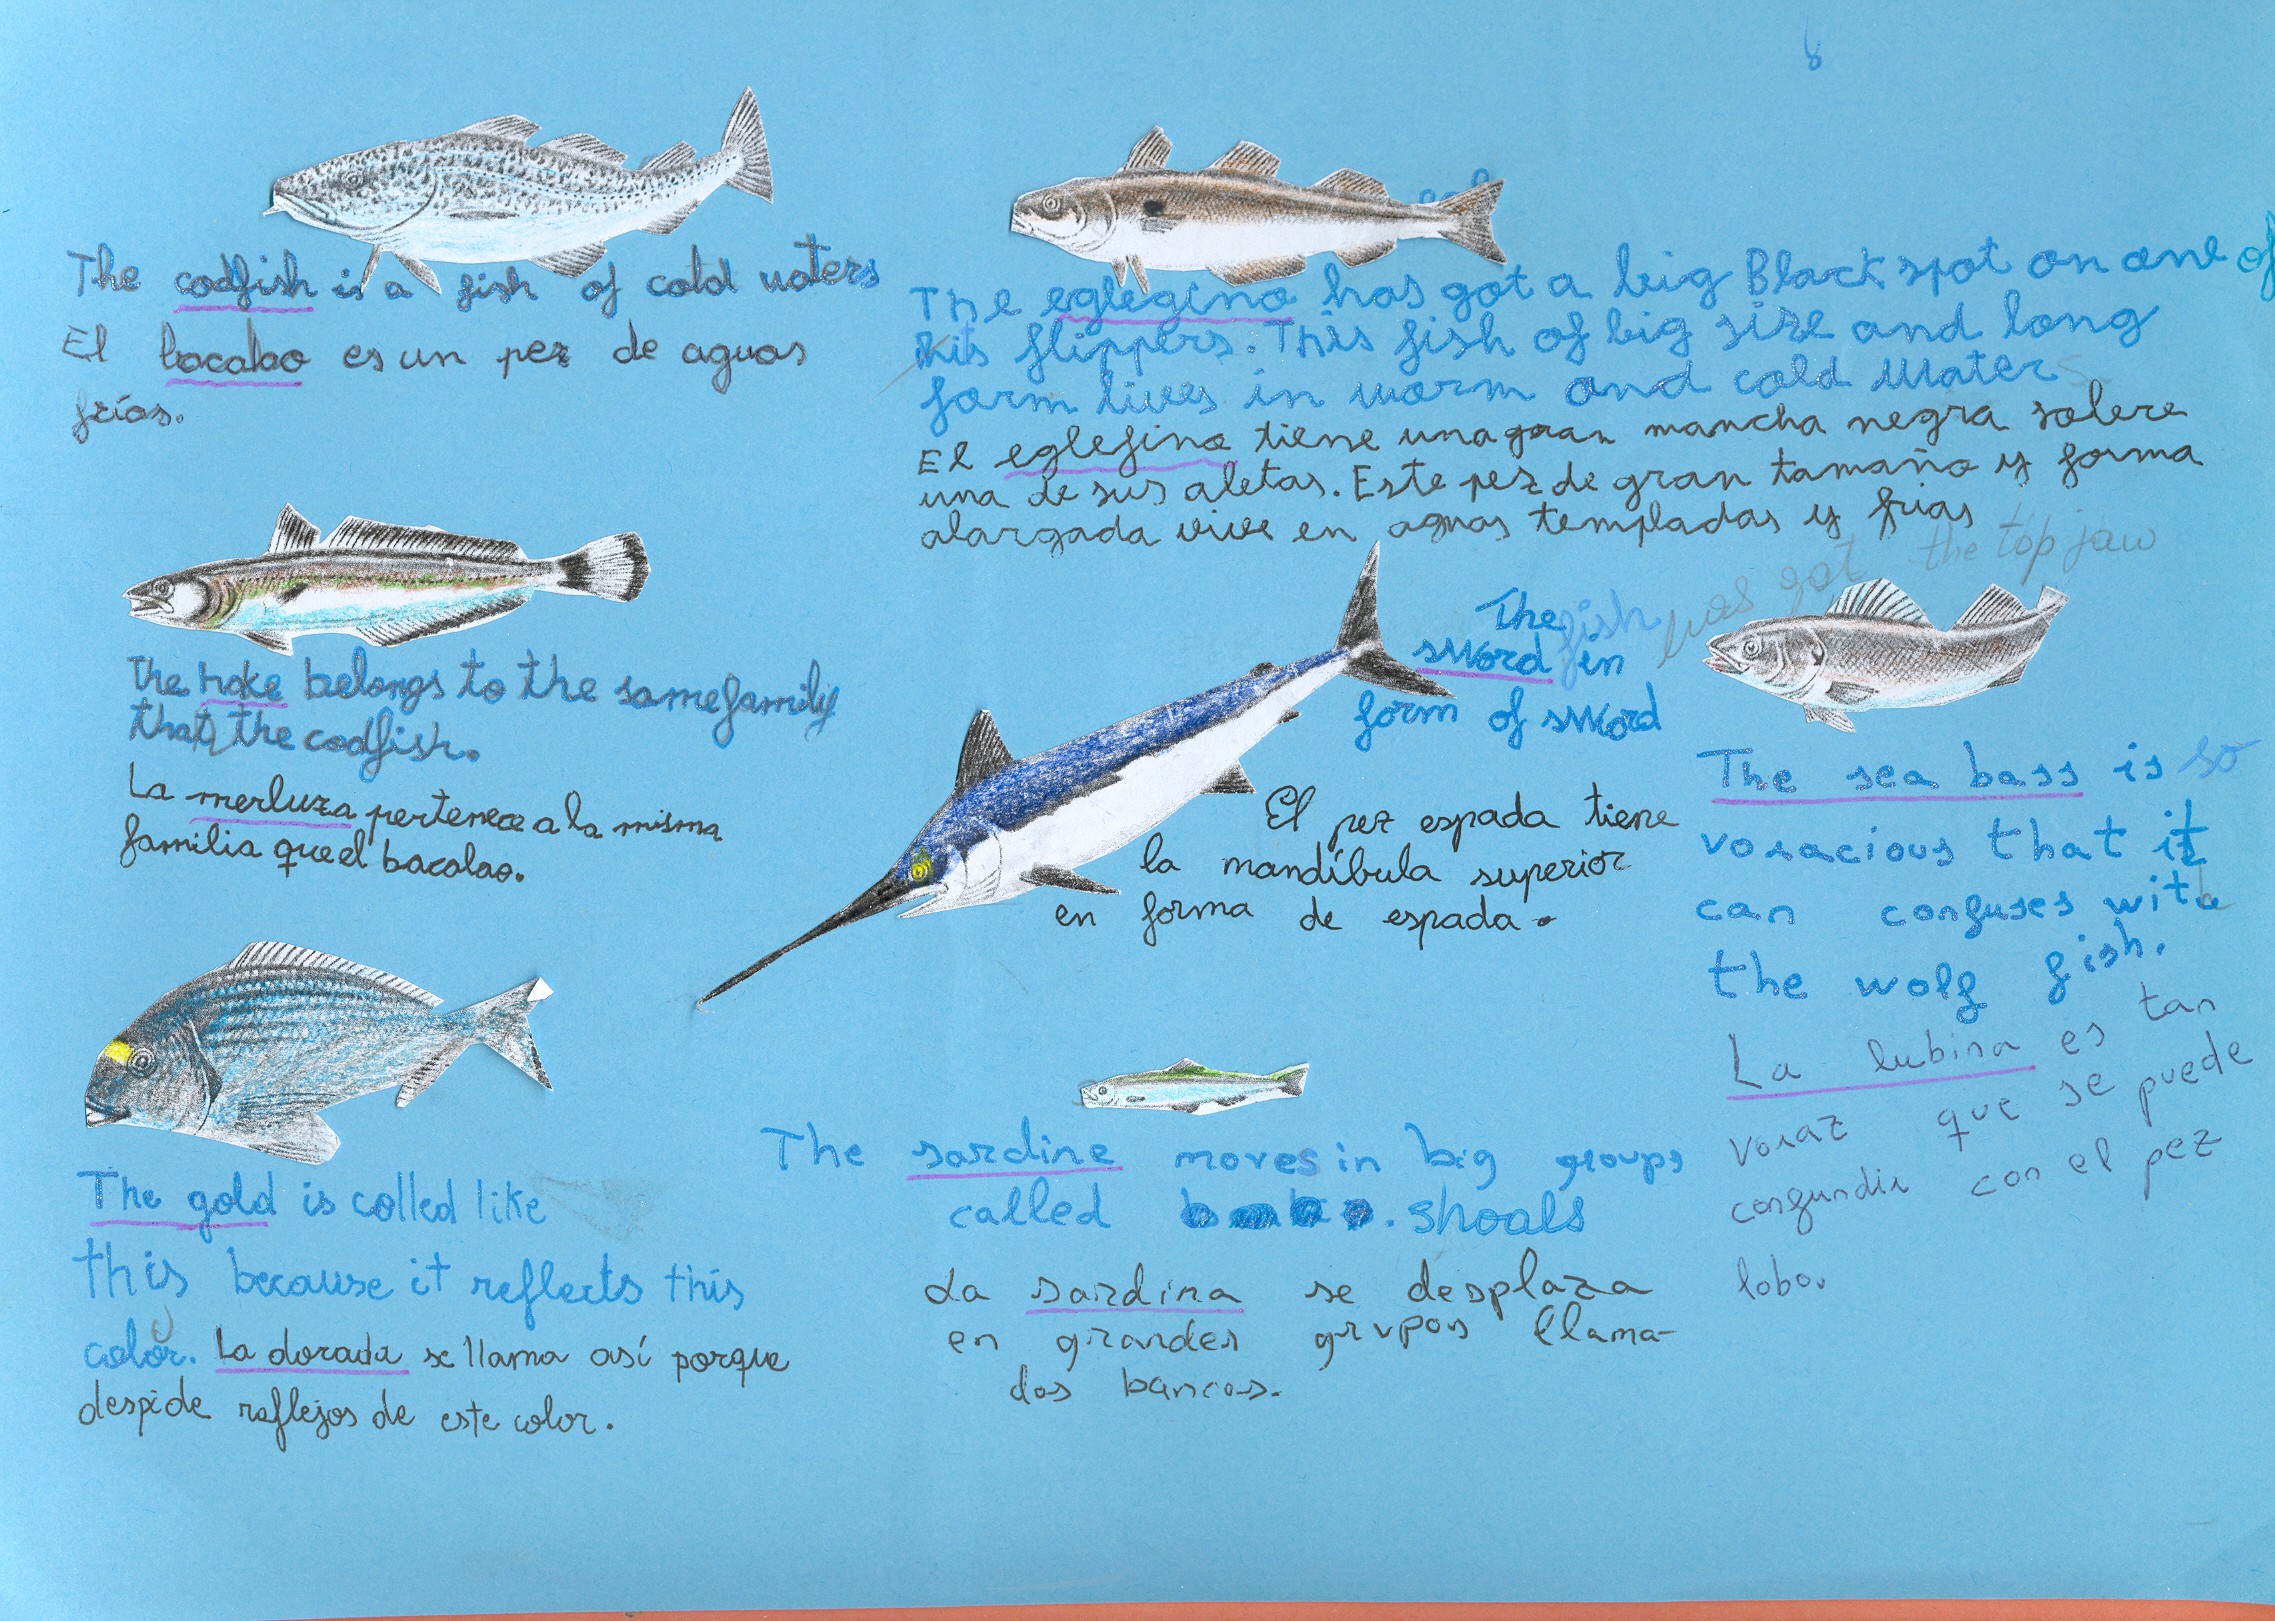 8
The codfish is a fish of cold waters
El bacalao es un pez de aguas
frías.
The eglegino has got a big Black spot on one of
its flippers. This fish of big size and long
form lives in warm and cold Waters
El eglefino tiene una gran mancha negra sobre
una de sus aletas. Este pez de gran tamaño y forma
alargada vive en aguas templadas y frias
The hake belongs to the same family
that the codfish.
La merluza pertenece a la misma
familia que el bacalao.
The
sword fish has got the top jaw in
form of sword
El pez espada tiene
la mandíbula superior
en forma de espada.
The sea bass is so
voracious that it
can confuses with
the wolf fish.
La lubina es tan
voraz que se puede
confundir con el pez
lobo.
The gold is colled like
this because it reflects this
color. La dorada se llama así porque
despide reflejos de este color.
The sardine moves in big groups
called shoals
La sardina se desplaza
en grandes grupos llama-
dos bancos.